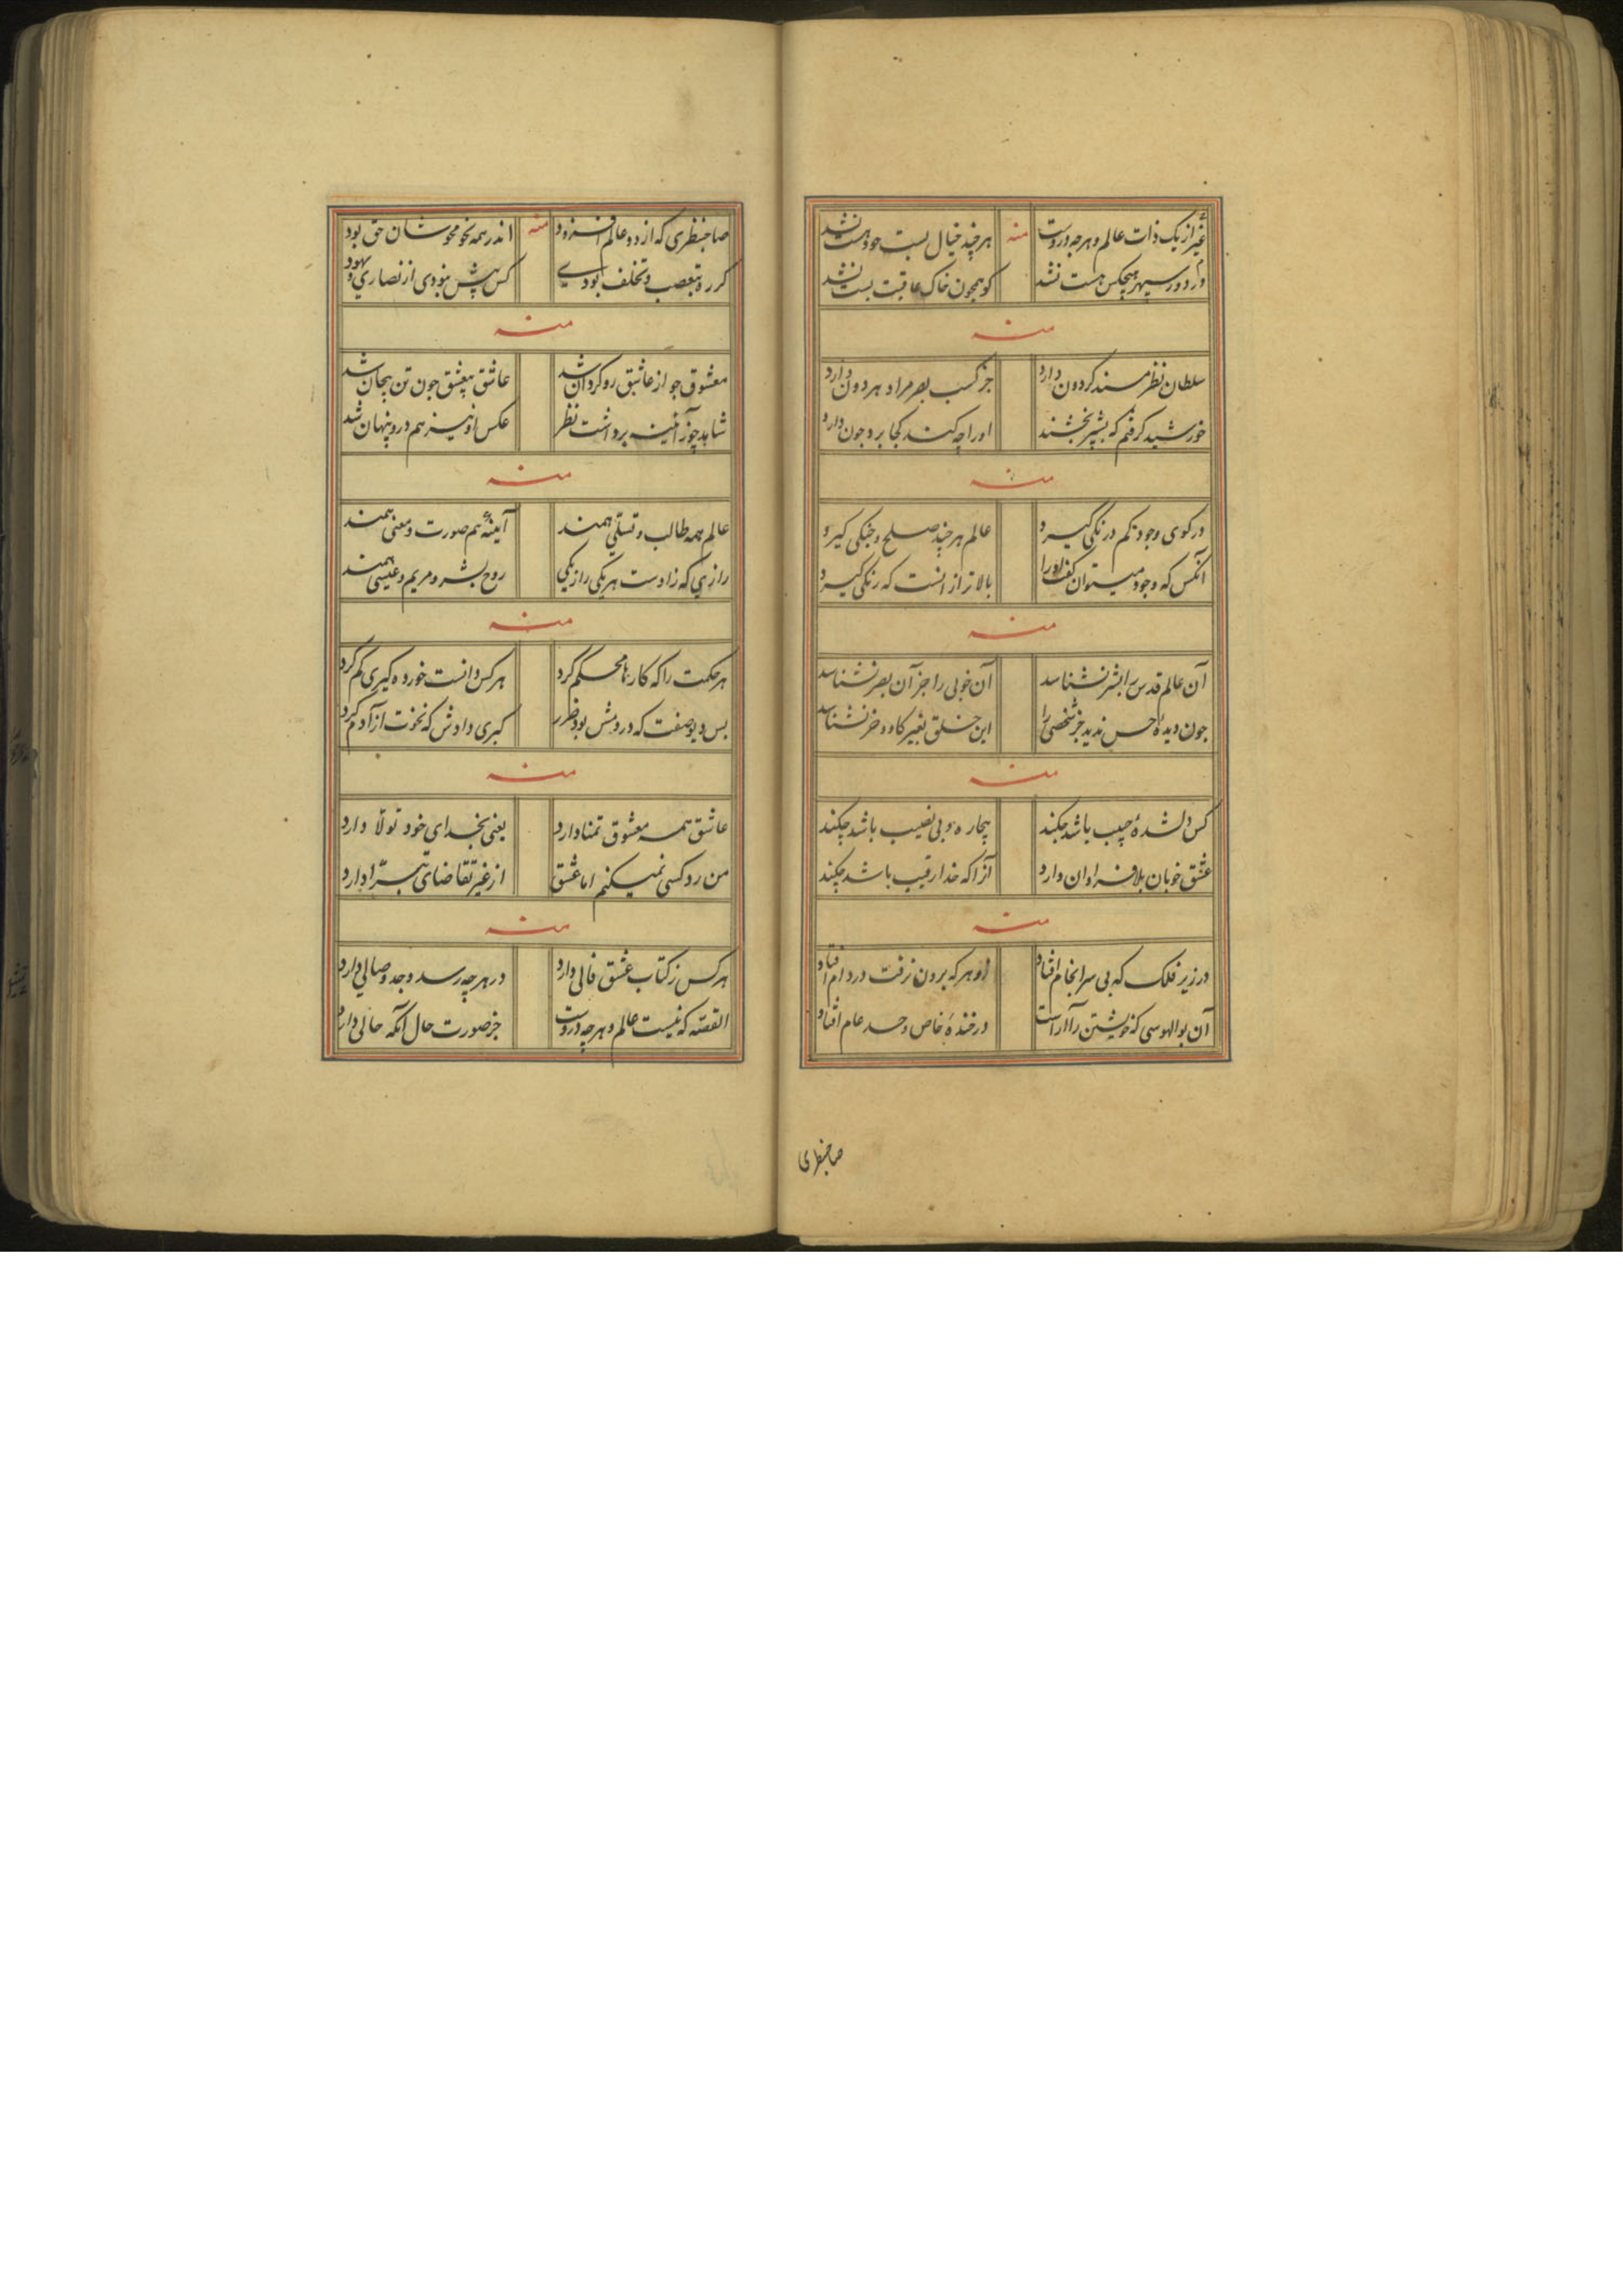 غیر از یک ذات عالم و هر چه دروست منه هر چند خیال بست خود هست نشد
در دور سپهر هیچکس هست نشد کو همچون خاک عاقبت پست نشد
منه
سلطان نظر مسند کردون دارد جز کسب بصر مراد هر دون دارد
خورشید کرفتم که بشپر بخشند او را چه کند کجا برد چون دارد
منه
در کوی وجود نکم درنکی کیرد عالم هر چند صلح و جنکی کیرد
آنکس که وجود میتوان کفت او را بالاتر از آنست که رنکی کیرد
منه
آن عالم قدس را بشر نشناسد آن خوبی را جز آن بصر نشناسد
چون دیدهٔ حس ندید جز شخصی را این خلق بغیر کاو و خر نشناسد
منه
کس دلشدهٔ حبیب باشد چکند بیچاره و بی نصیب باشد چکند
عشق خوبان بلا فراوان دارد آنرا که خدا رقیب باشد چکند
منه
در زیر فلک که بی سرانجام افتاد او هر که برون نرفت در دام افتاد
آن بوالهوسی که خویشتن را آراست در خندهٔ خاص و حسد عام افتاد
صاحبنظری
صاحبنظری که از دو عالم افزود منه اندر همه نحو محوشان حق بود
کر ره بتعصب و تخلف بودی کس پیش نبودی از نصاری و یهود
منه
معشوق چو از عاشق رو کردان شد عاشق بیعشق چون تن بیجان شد
شاهد چو ز آئینه برداشت نظر عکس او نیز هم درو پنهان شد
منه
عالم همه طالب و تسلی همند آیینهٔ هم صورت و معنی همند
رازی که زادست هر یکی را ز یکی روح بشر و مریم و عیسی همند
منه
هر حکمت را که کارها محکم کرد هر کس دانست خورده کیری کم کرد
بس دیو صفت که درومش بود ضرر کبری دادش که نخوت از آدم کرد
منه
عاشق همه معشوق تمنا دارد یعنی بخدای خود تولا دارد
من رد کسی نمیکنم اما عشق از غیر تقاضای تبرا دارد
منه
هر کس ز کتاب عشق فالی دارد در هر چه رسد وجد وصالی دارد
القصه که نیست عالم و هر چه دروست جز صورت حال آنکه حالی دارد